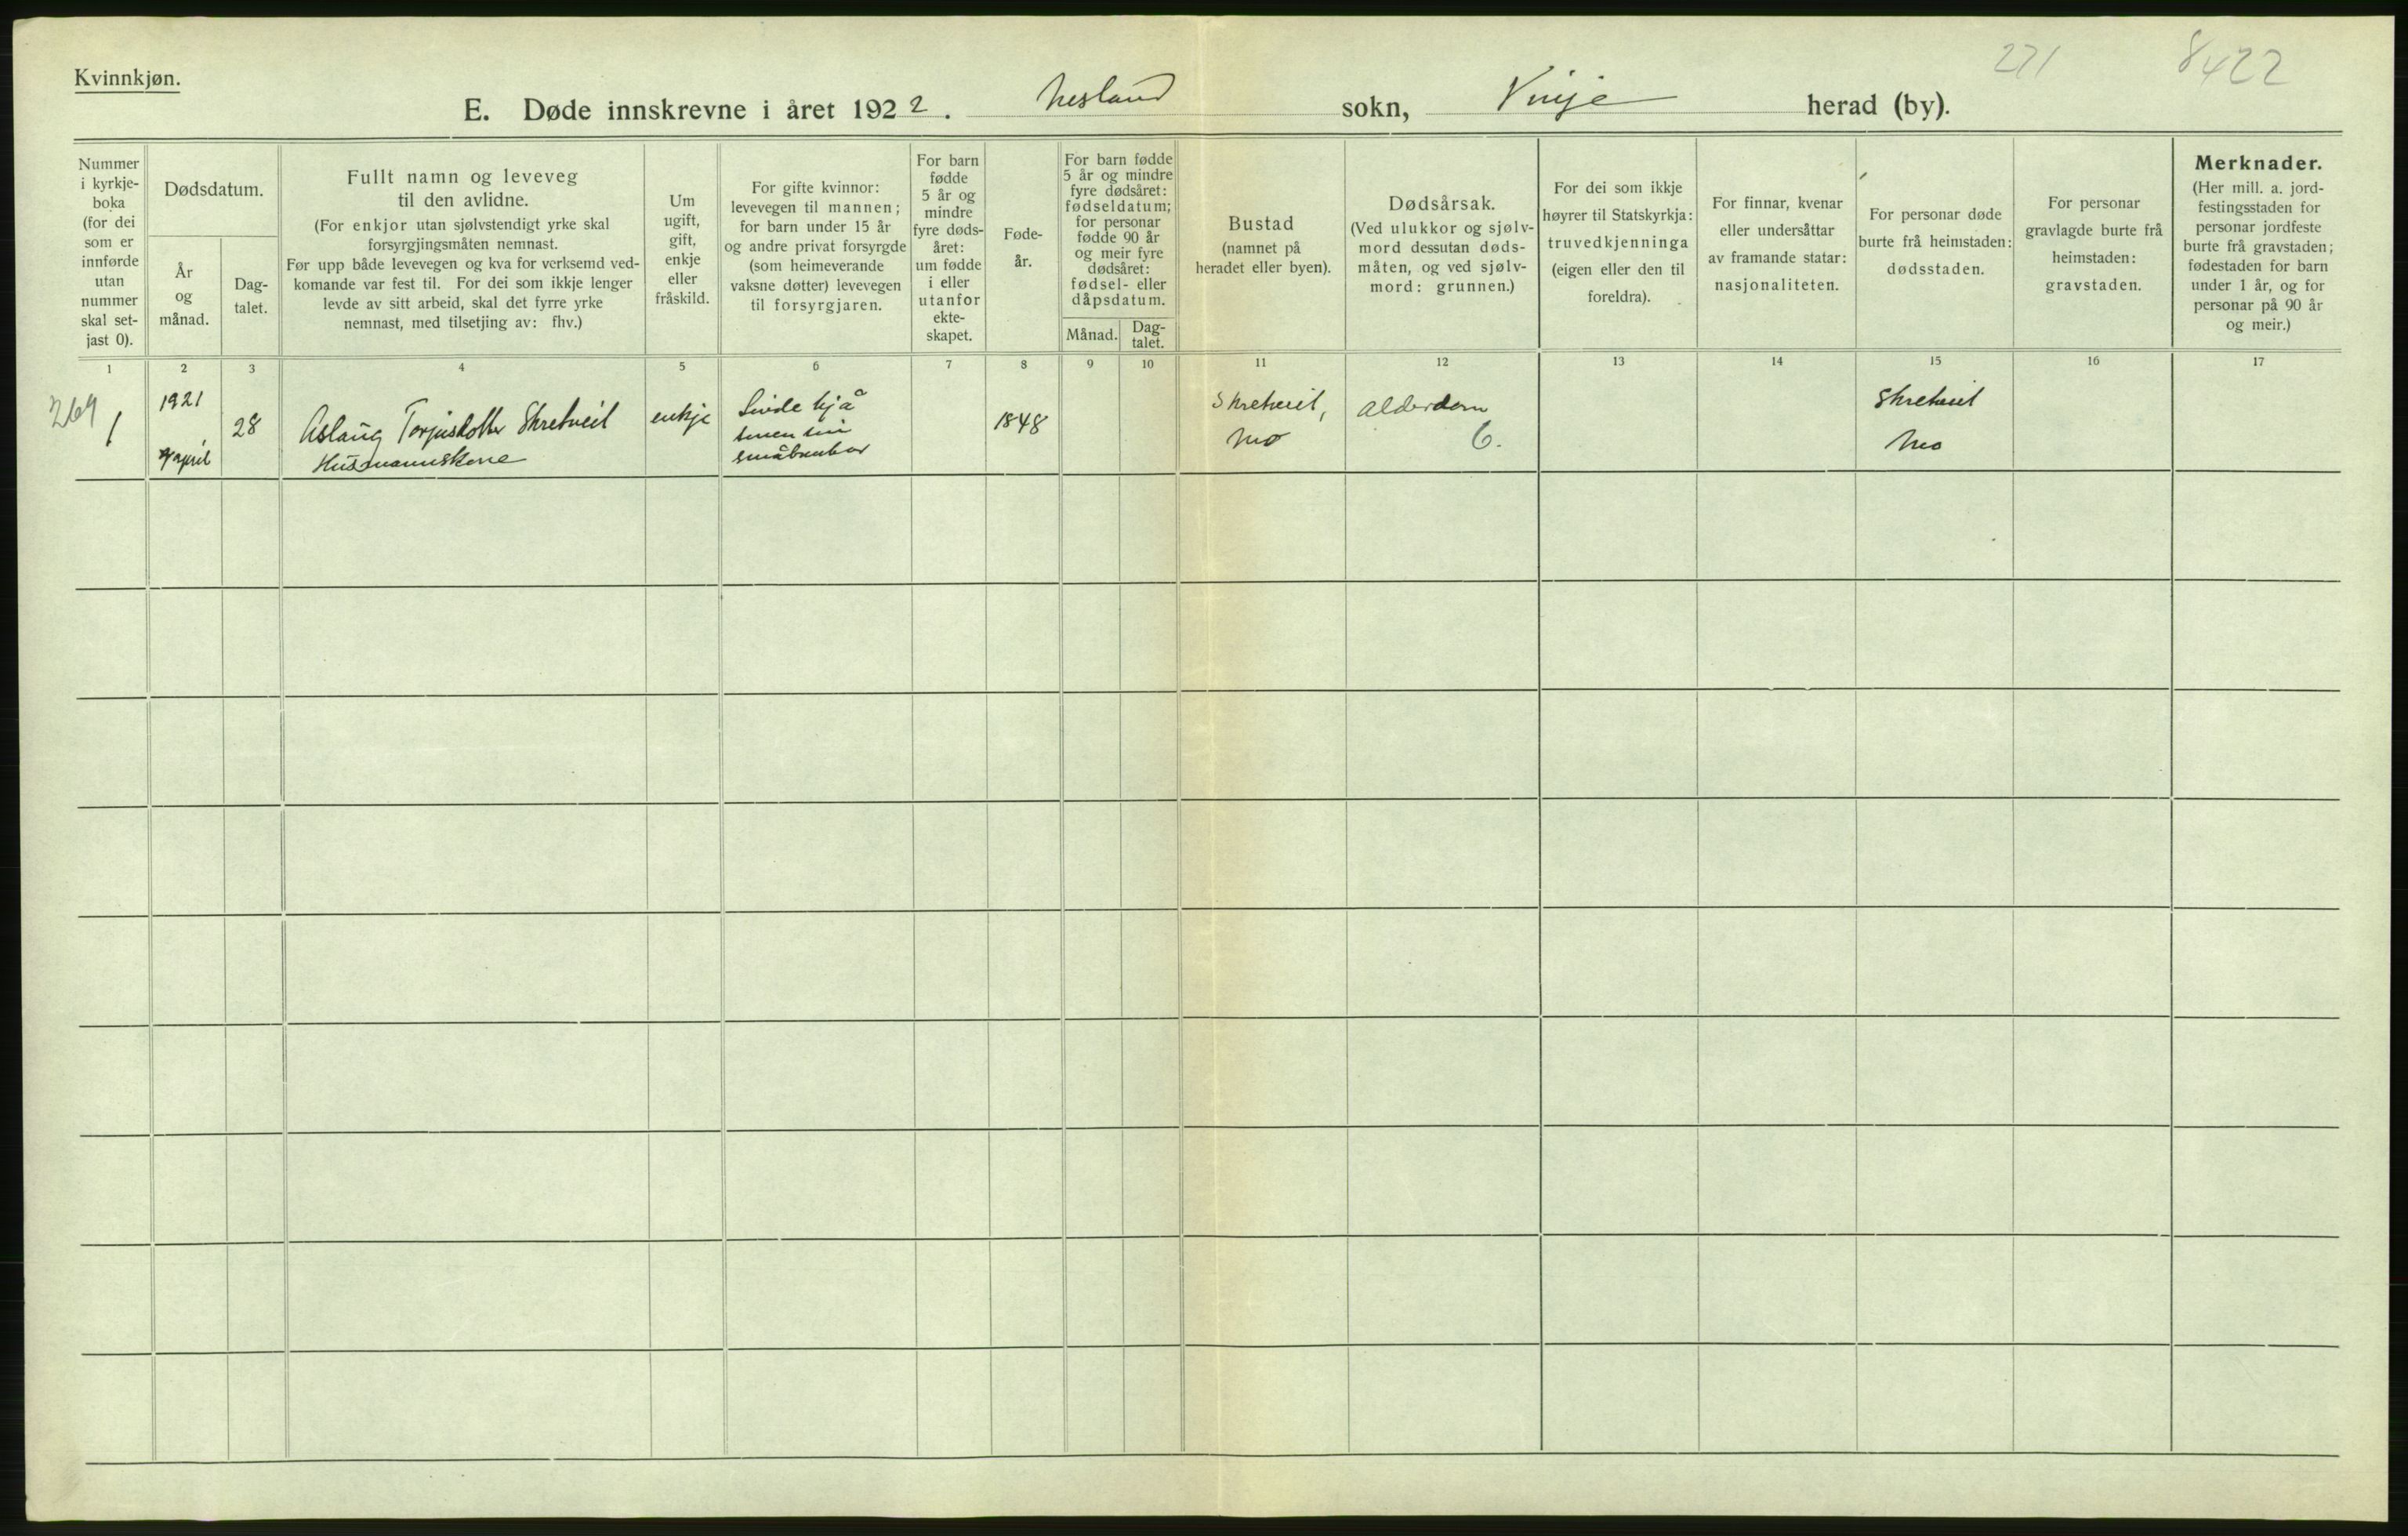 Kvinnkjøn.
271
8422
E. Døde innskrevne i året 1922. Nesland sokn, Vinje herad (by).
Nummer
i kyrkje-
boka
(for dei
som er
innførde
utan
nummer
skal set-
jast 0).
Dødsdatum.
År
og
månad.
Dag-
talet.
Fullt namn og leveveg
til den avlidne.
(For enkjor utan sjølvstendigt yrke skal
forsyrgjingsmåten nemnast.
Før upp både levevegen og kva for verksemd ved-
komande var fest til. For dei som ikkje lenger
levde av sitt arbeid, skal det fyrre yrke
nemnast, med tilsetjing av: fhv.)
Um
ugift,
gift,
enkje
eller
fråskild.
For gifte kvinnor:
levevegen til mannen;
for barn under 15 år
og andre privat forsyrgde
(som heimeverande
vaksne døtter) levevegen
til forsyrgjaren.
For barn
fødde
5 år og
mindre
fyre døds-
året:
um fødde
i eller
utanfor
ekte-
skapet.
Føde-
år.
For barn fødde
5 år og mindre
fyre dødsåret:
fødseldatum;
for personar
fødde 90 år
og meir fyre
dødsåret:
fødsel- eller
dåpsdatum.
Månad.
Dag-
talet.
Bustad
(namnet på
heradet eller byen).
Dødsårsak.
(Ved ulukkor og sjølv-
mord dessutan døds-
måten, og ved sjølv-
mord: grunnen.)
For dei som ikkje
høyrer til Statskyrkja:
truvedkjenninga
(eigen eller den til
foreldra).
For finnar, kvenar
eller undersåttar
av framande statar:
nasjonaliteten.
For personar døde
burte frå heimstaden:
dødsstaden.
For personar
gravlagde burte frå
heimstaden:
gravstaden.
Merknader.
(Her mill. a. jord-
festingsstaden for
personar jordfeste
burte frå gravstaden;
fødestaden for barn
under 1 år, og for
personar på 90 år
og meir.)
1 2 3 4 5 6 7 8 9 10 11 12 13 14 15 16 17
269
1
1921
april
28
Aslaug Torjusdotter Skretveit
Husmannskone
enkje
Livde hjå
sonen sin
småbrukar
1848
Skretveit,
Mo
Alderdom
6.
Skretveit
Mo